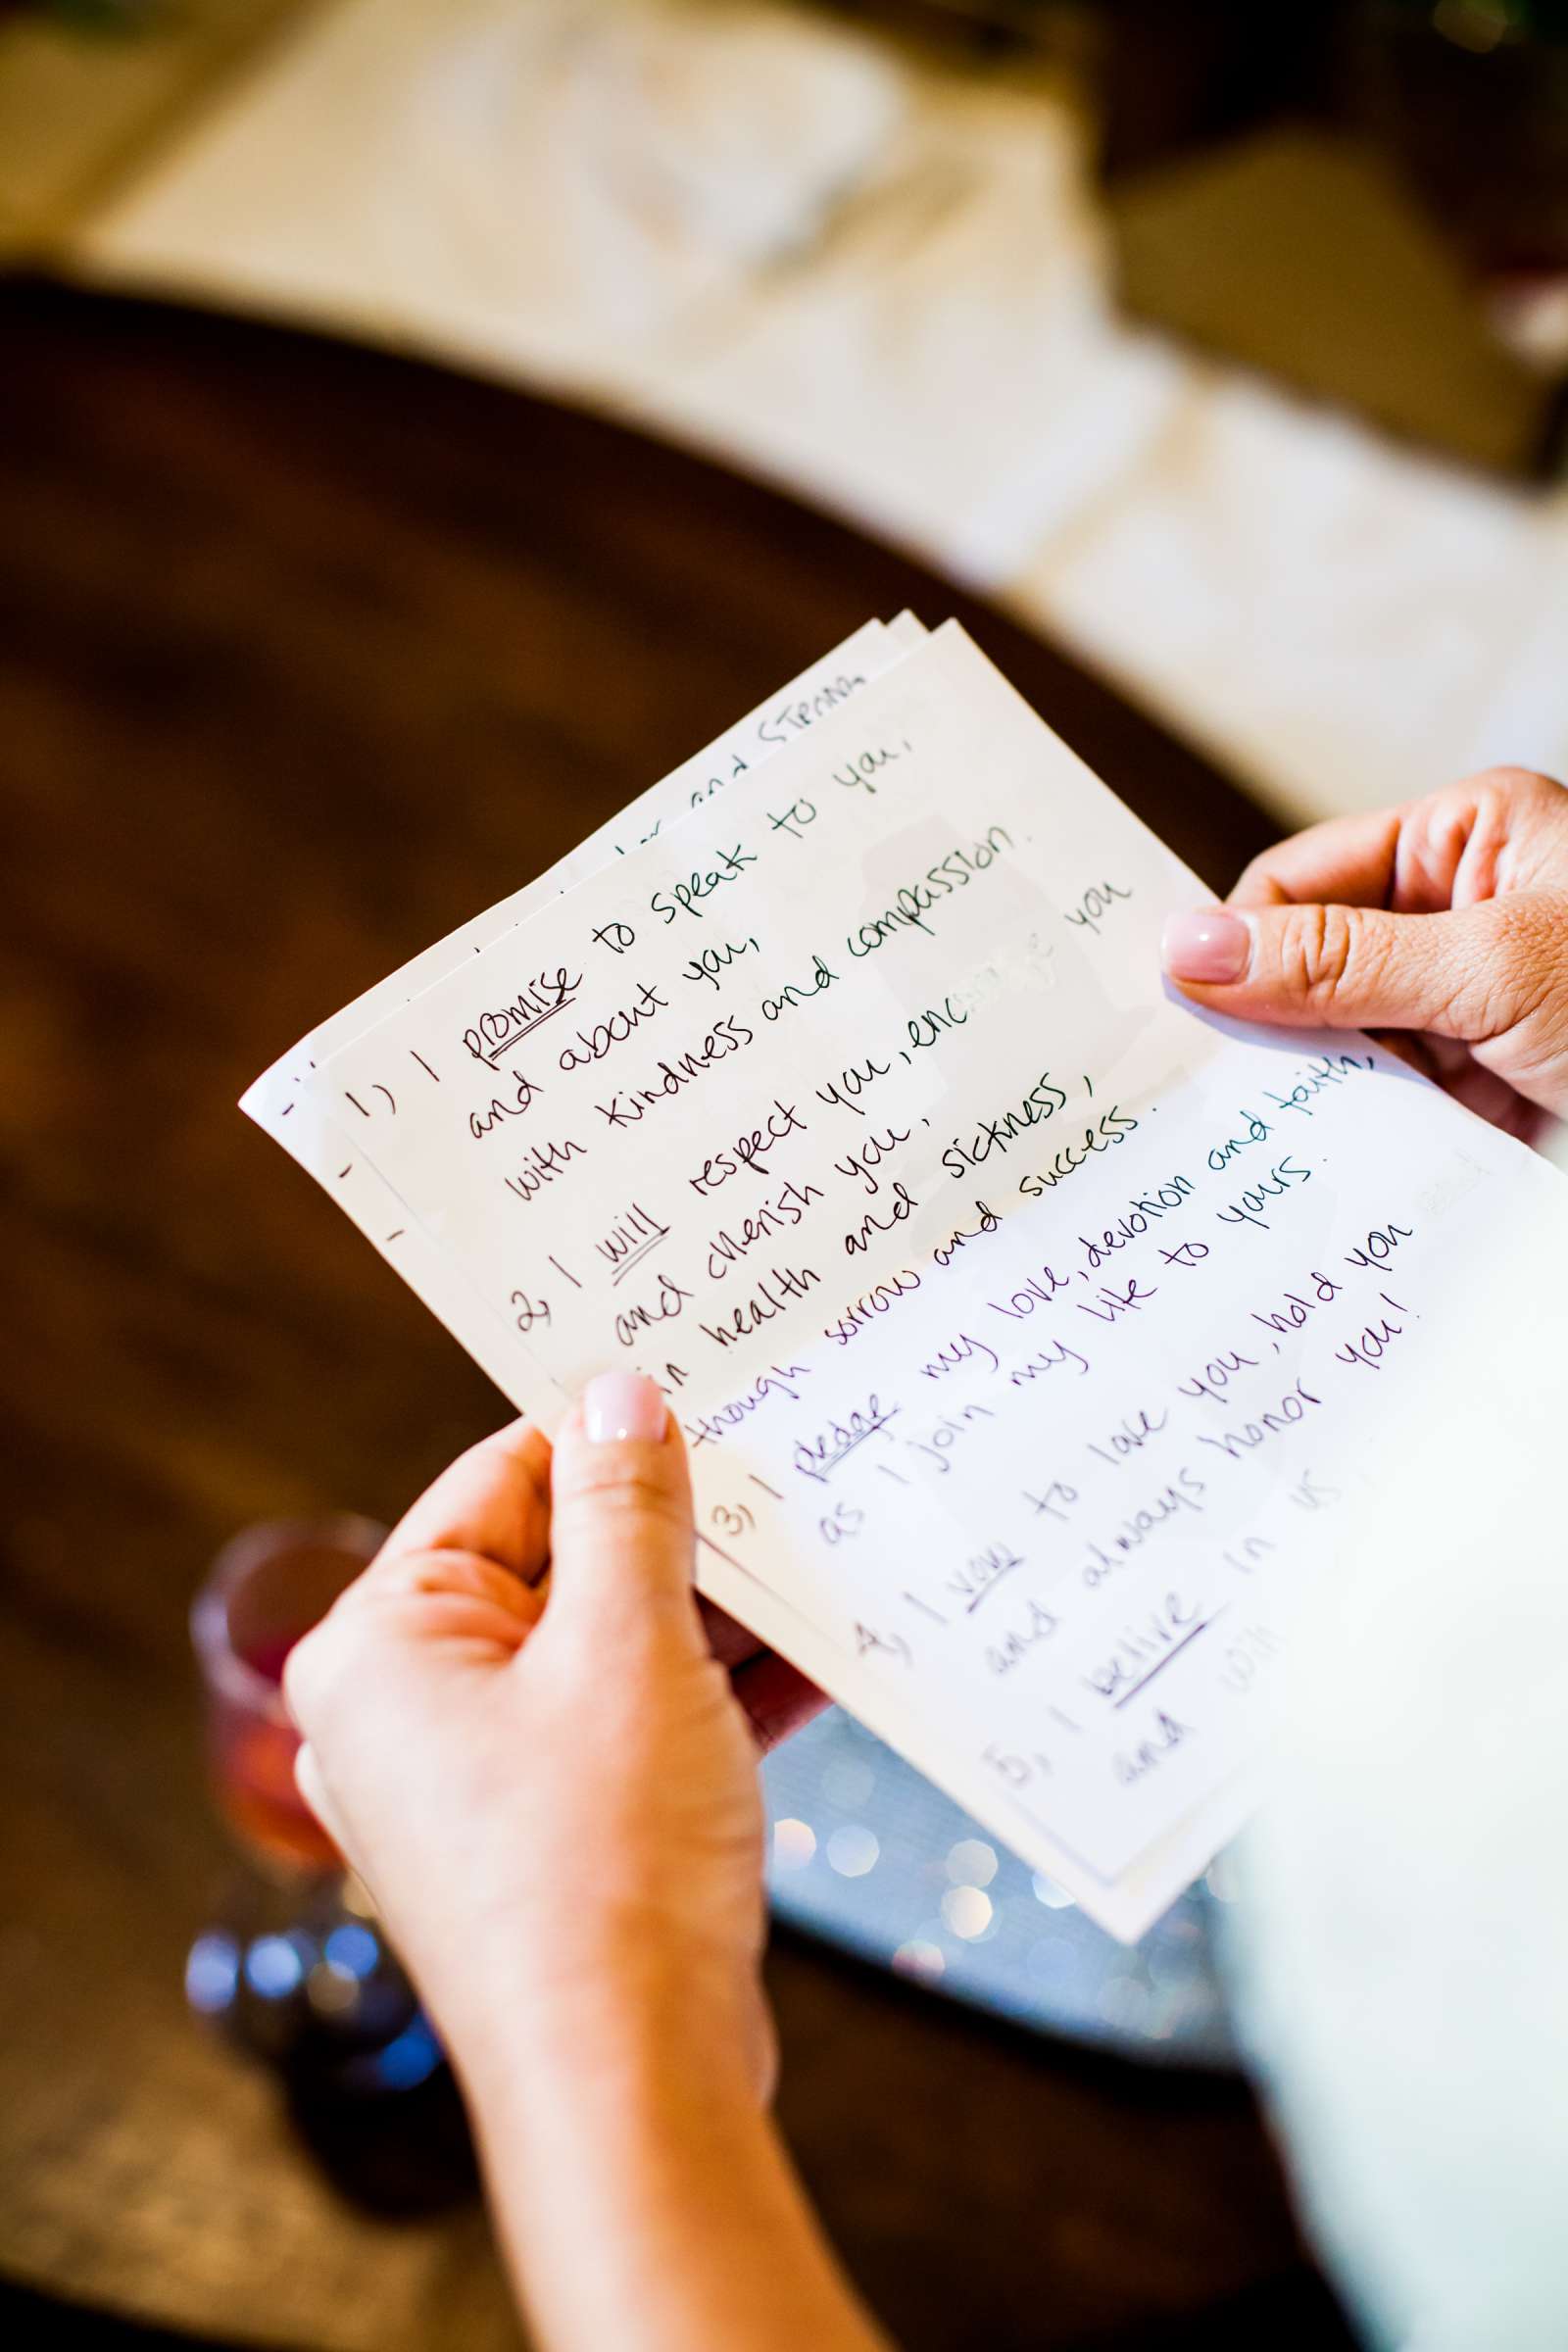 and
1) I promise to speak to you,
and about you,
with kindness and compassion.
2, I will respect you, encourage you
and cherish you,
in health and sickness,
though sorrow and success.
3, I pledge my love, devotion and faith,
as I join my life to yours.
4, I vow to love you, hold you
and always honor you!
5, I belive in us
and